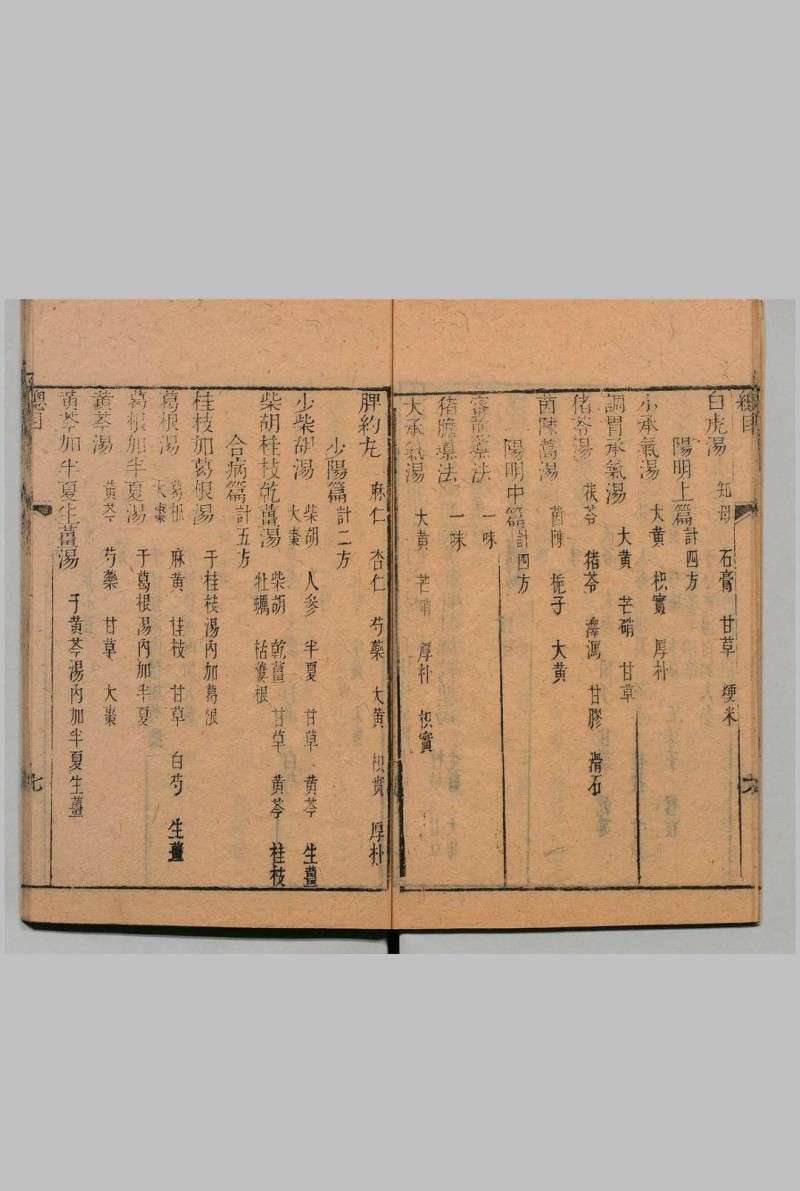 總目
白虎湯 知母 石膏 甘草 硬米
陽明上篇計四方
小承氣湯 大黄 枳實 厚朴
調胃承氣湯 大黄 芒硝 甘草
猪苓湯 茯苓 猪苓 澤瀉 甘膠 滑石
茵陳蒿湯 茵陳 梔子 大黄
陽明中篇計四方
蜜煎導法 一味
猪膽導法 一味
大承氣湯 大黄 芒硝 厚朴 枳實
六
脾約丸 麻仁 杏仁 芍藥 大黄 枳實 厚朴
少陽篇計二方
少柴胡湯 柴胡 人參 半夏 甘草 黄芩 生薑
大棗
柴胡桂枝乾薑湯 柴胡 乾薑 甘草 黄芩 桂枝
牡蠣 栝蔞根
合病篇計五方
桂枝加葛根湯 于桂枝湯內加葛根
葛根湯 葛根 麻黄 桂枝 甘草 白芍 生薑
大棗
葛根加半夏湯 于葛根湯內加半夏
黄芩湯 黄芩 芍藥 甘草 大棗
黄芩加半夏生薑湯 于黄芩湯內加半夏生薑
總目
七